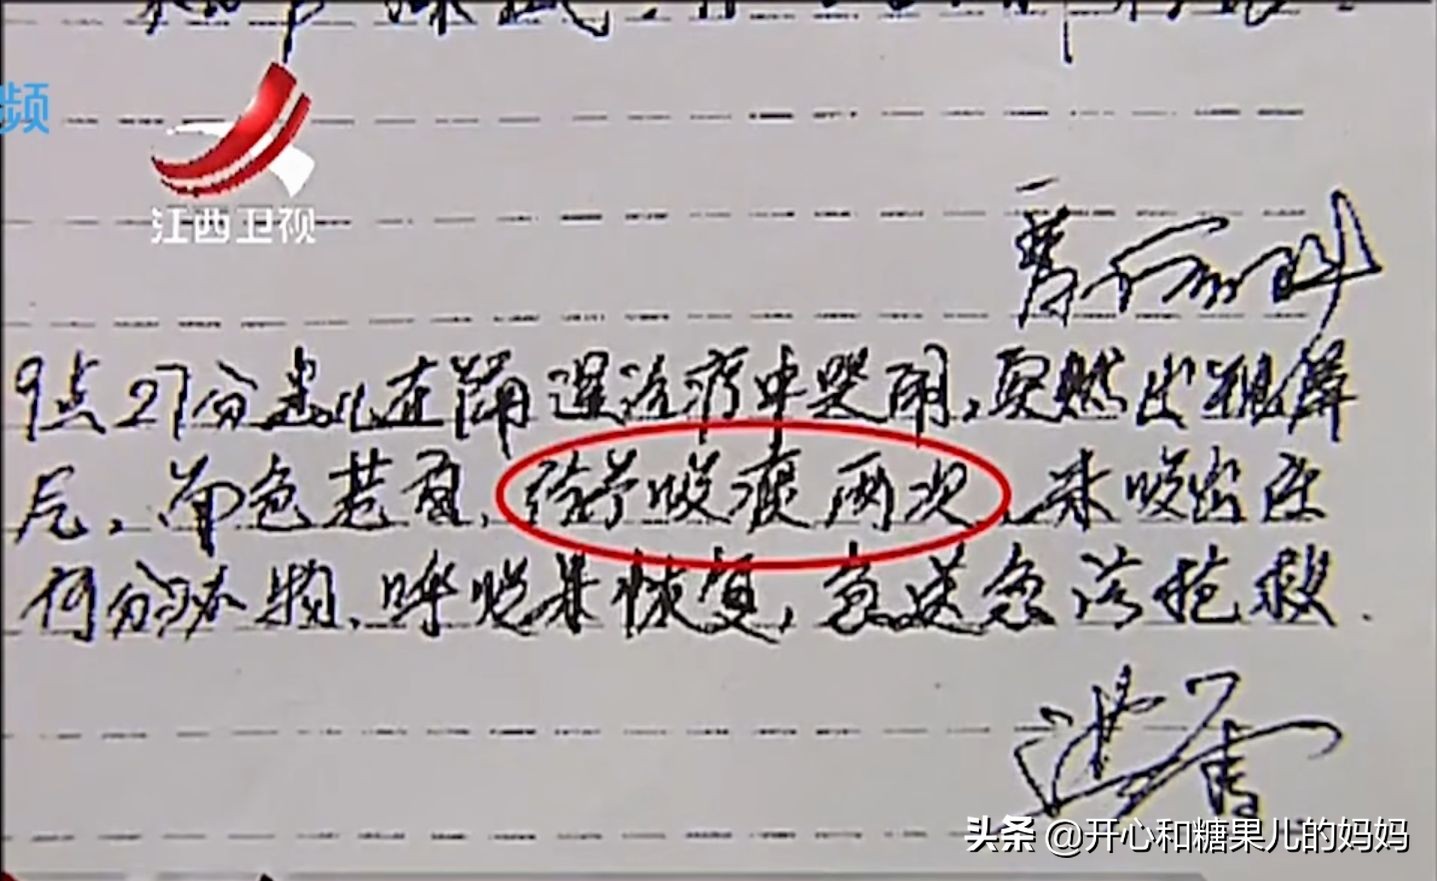 频
江西卫视
9点27分患儿在治疗中哭闹,突然出现屏
气,面色苍,给予吸痰两次,未吸出任
何分泌物,呼吸未恢复,急送急诊抢救.
头条 @开心和糖果儿的妈妈